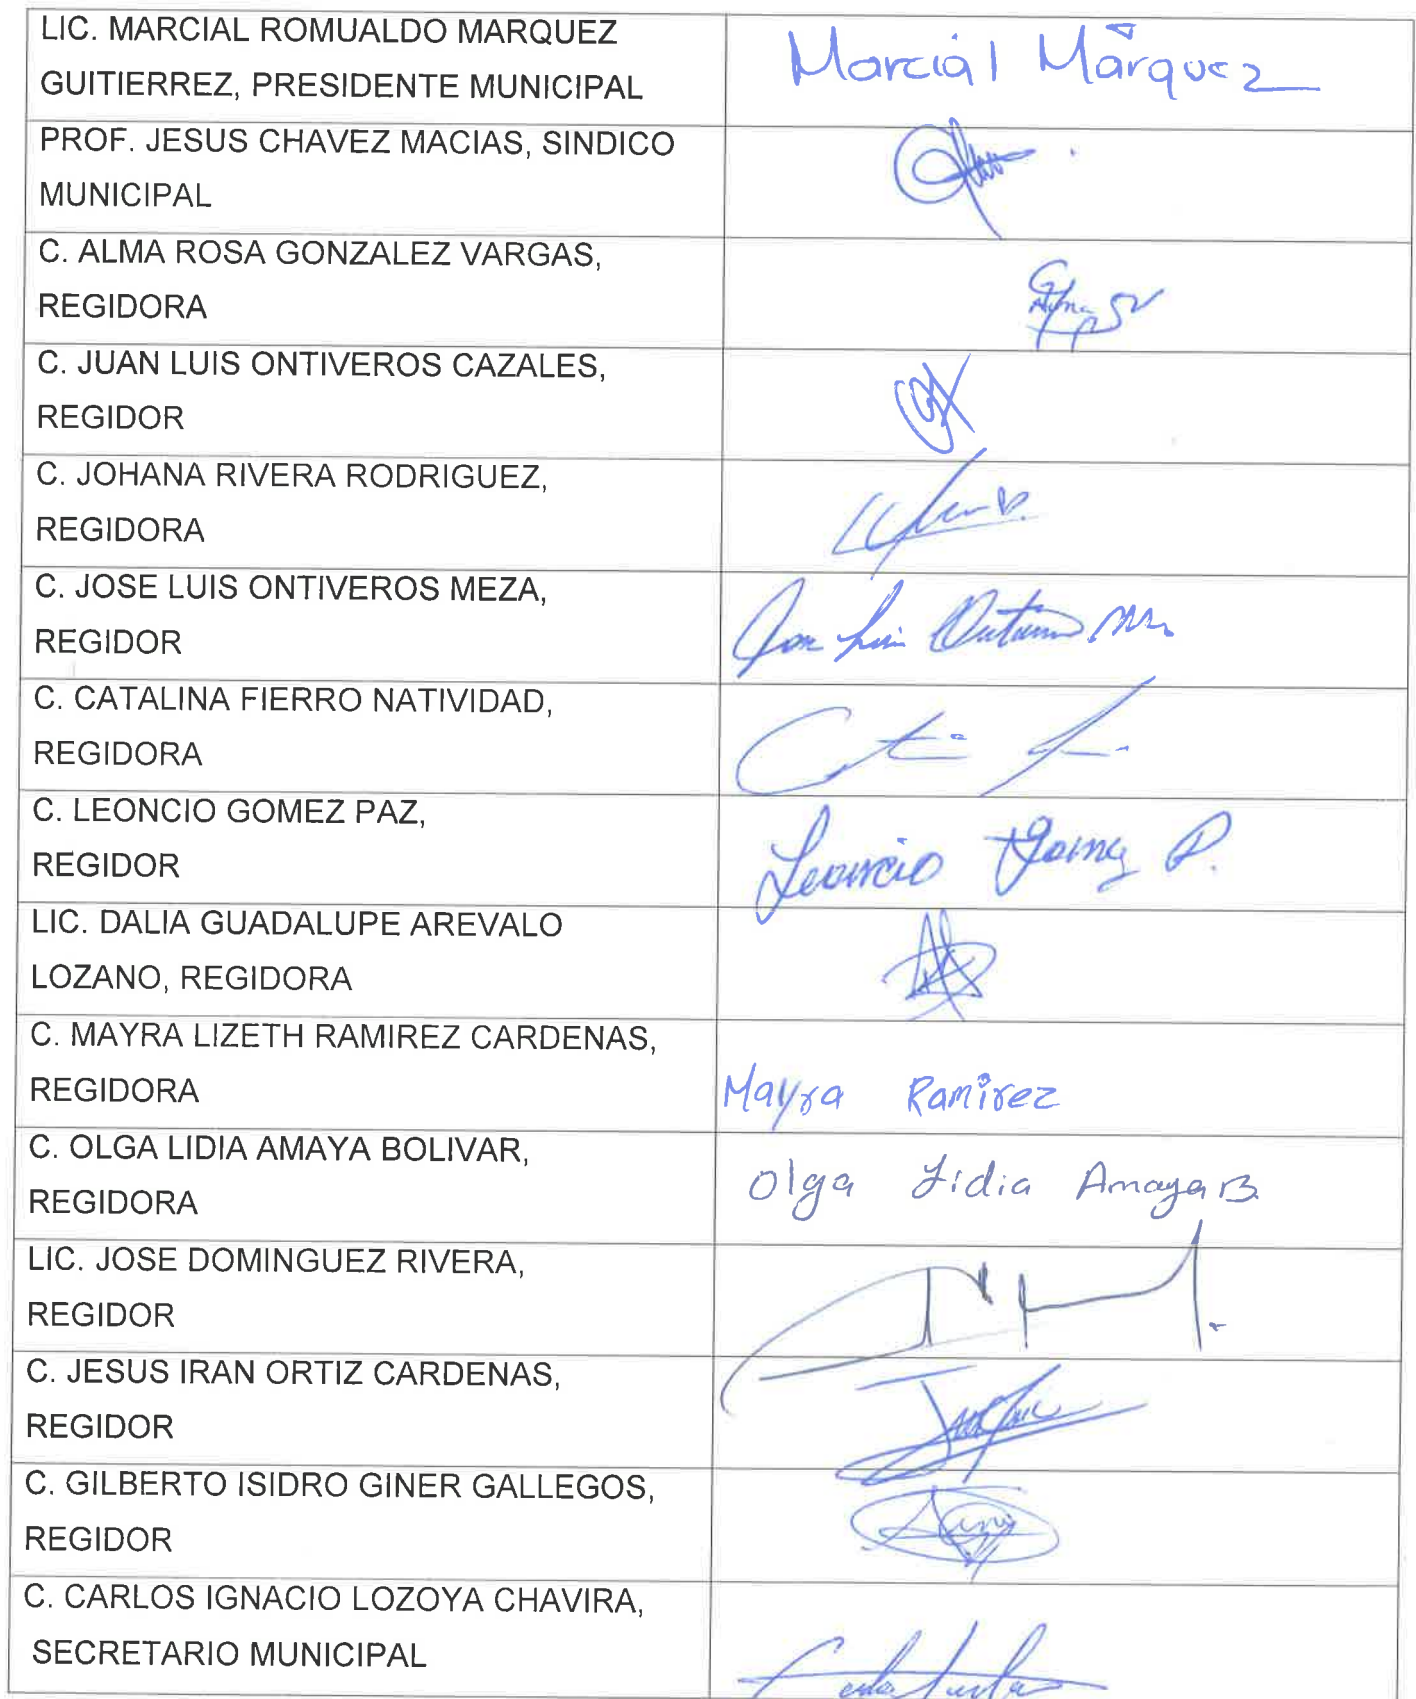 LIC. MARCIAL ROMUALDO MARQUEZ
GUITIERREZ, PRESIDENTE MUNICIPAL
Marcial Márquez
PROF. JESUS CHAVEZ MACIAS, SINDICO
MUNICIPAL
C. ALMA ROSA GONZALEZ VARGAS,
REGIDORA
C. JUAN LUIS ONTIVEROS CAZALES,
REGIDOR
C. JOHANA RIVERA RODRIGUEZ,
REGIDORA
C. JOSE LUIS ONTIVEROS MEZA,
REGIDOR
C. CATALINA FIERRO NATIVIDAD,
REGIDORA
C. LEONCIO GOMEZ PAZ,
REGIDOR
Leoncio Gomez P.
LIC. DALIA GUADALUPE AREVALO
LOZANO, REGIDORA
C. MAYRA LIZETH RAMIREZ CARDENAS,
REGIDORA
Mayra Ramirez
C. OLGA LIDIA AMAYA BOLIVAR,
REGIDORA
Olga Lidia Amaya B
LIC. JOSE DOMINGUEZ RIVERA,
REGIDOR
C. JESUS IRAN ORTIZ CARDENAS,
REGIDOR
C. GILBERTO ISIDRO GINER GALLEGOS,
REGIDOR
C. CARLOS IGNACIO LOZOYA CHAVIRA,
SECRETARIO MUNICIPAL